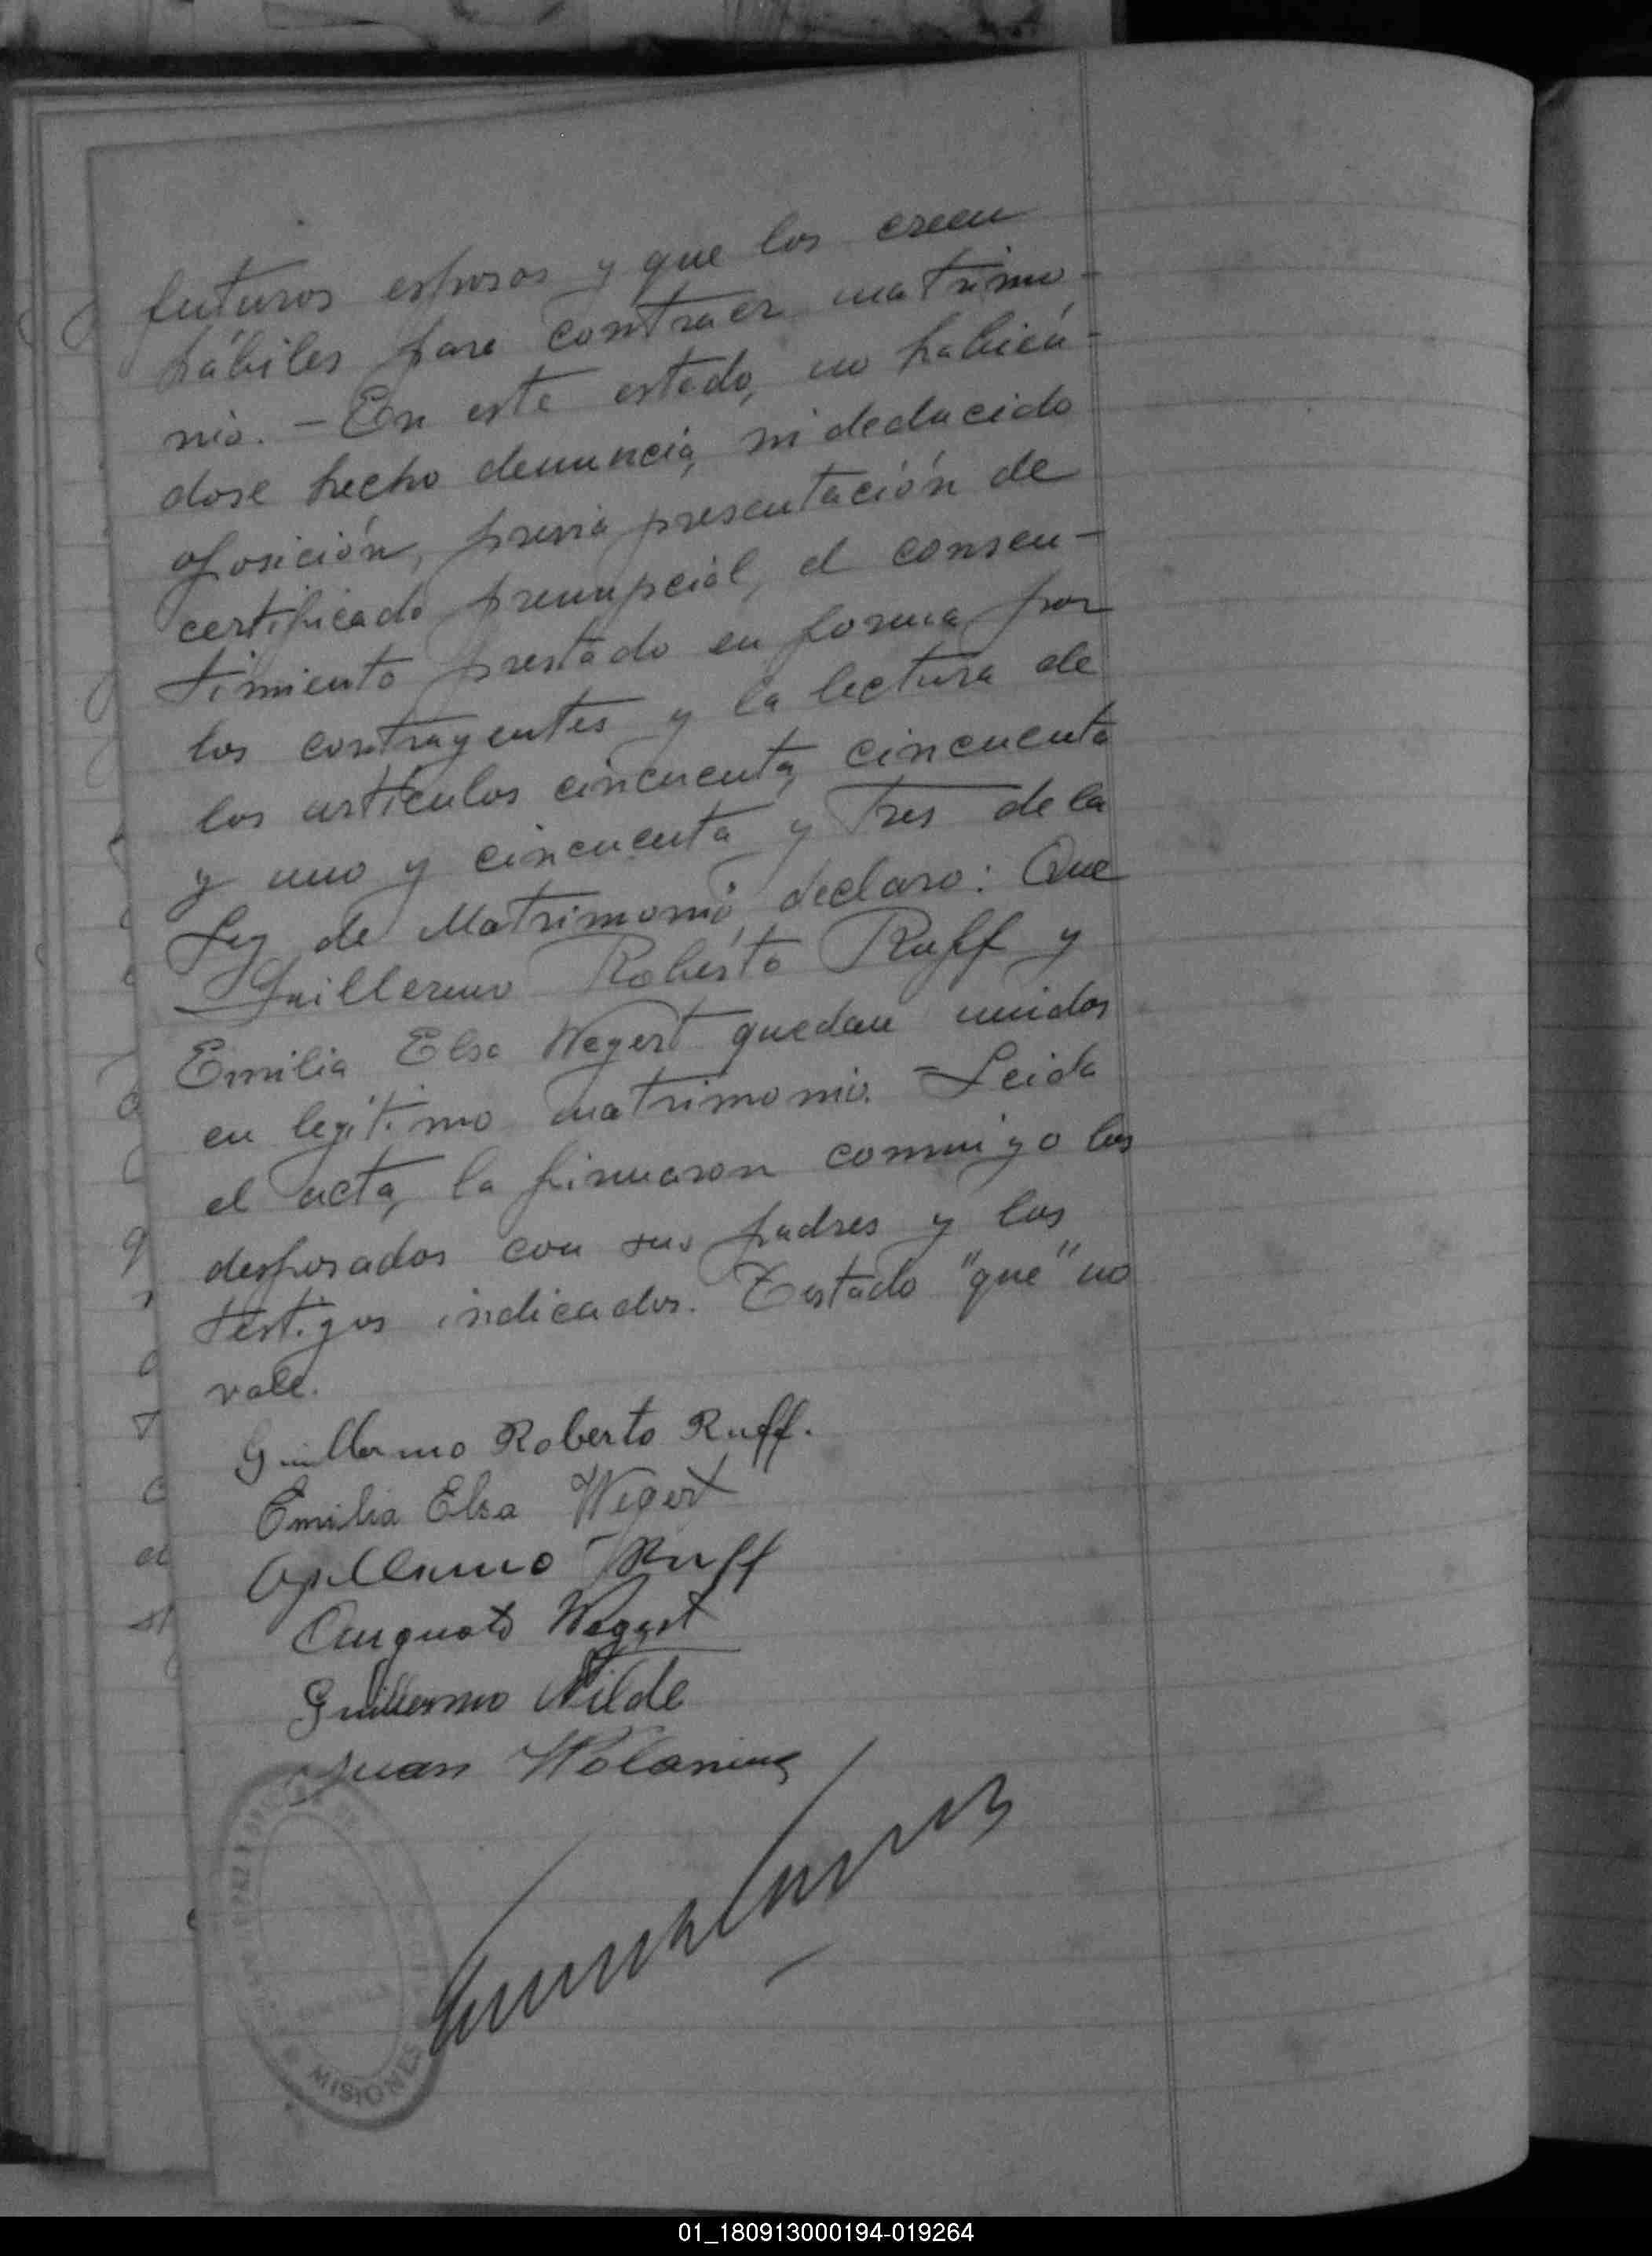 futuros esposos y que los creen
hábiles para contraer matrimo-
nio. - En este estado, no habién-
dose hecho denuncia, ni deducido
oposición, previa presentación de
certificado prenupcial, el consen-
timiento prestado en forma por
los contrayentes y la lectura de
los artículos cincuenta, cincuenta
y uno y cincuenta y tres de la
Ley de Matrimonio, declaro: Que
Guillermo Roberto Ruff y
Emilia Elsa Wegert quedan unidos
en legítimo matrimonio. = Leida
el acta, la firmaron conmigo los
desposados con sus padres y los
testigos indicados. Testado "que" no
vale.
Guillermo Roberto Ruff.
Emilia Elsa Wegert
Guillermo Ruff
Augusto Wegert
Guillermo Wilde
Juan
MISIONES
01_180913000194-019264